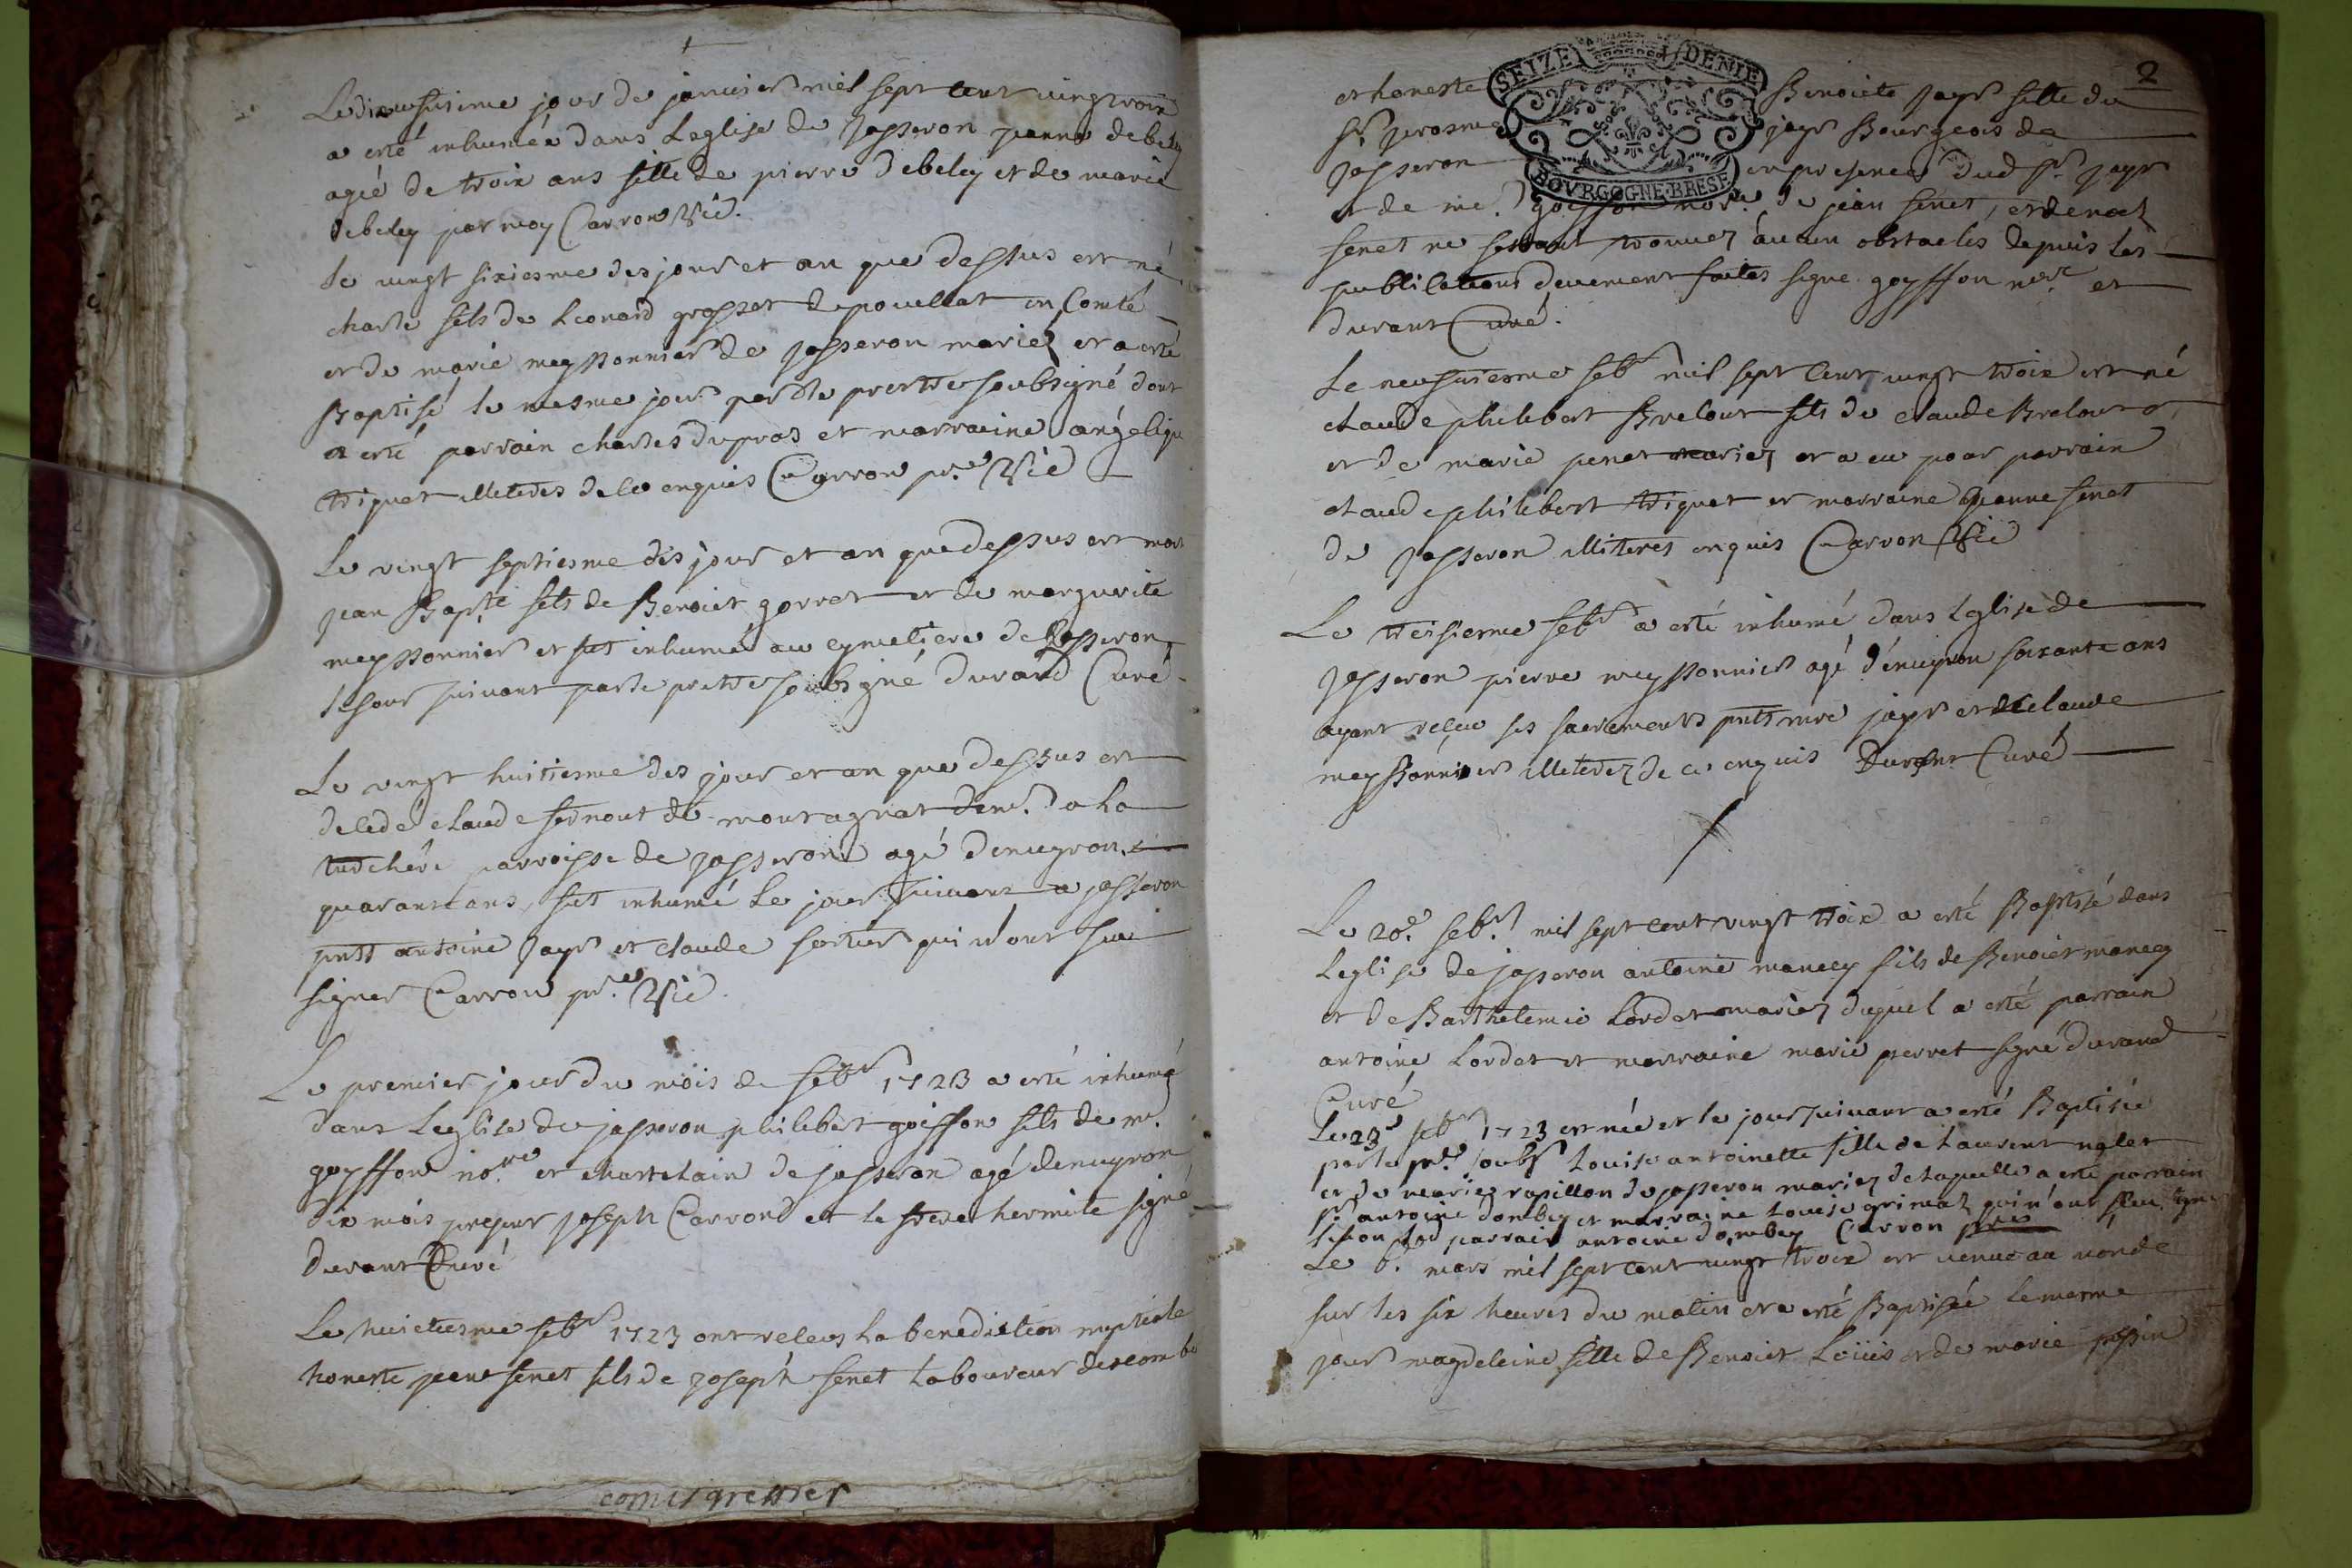 Le dixneufviesme jour de janvier mil sept cent vingt trois
a esté inhumée dans Leglise de Jasseron jeanne debeley
agée de trois ans fille de pierre debeley et de marie
debeley par moy Carron Vic.
Le vingt sixiesme des jour et an que dessus est né
charle fils de Leonard grosset de pouillat en Comté
et de marie meyssonnier de Jasseron mariez et a esté
Baptisé le mesme jour par le prestre soubsigné dont
a esté parrain charles dupras et marraine angelique
triquet illeteres de ce enquis Carron pr. Vic
Le vingt septiesme des jour et an que dessus est mort
jean Bapte fils de Benoict gorret et de marguerite
meyssonnier et fut inhumé au cymetiere de Jasseron
le jour suivant par le prestre soubsigné Durand Curé
Le vingt huitiesme des jour et an que dessus est
decedé claude fernout de montagnat dem.t a la
parroisse de jasseron agé denuyron
quarante ans, fut inhumé Le jour suivant a jasseron
pnts antoine Jayr et claude qui n'ont sceu
signer Carron pr. Vic
Le premier jour du mois de febr 1723 a esté inhumé
dans Leglise de jasseron philibert goiffon fils de mr.
goyffon no.re et chastelain de jasseron agé denuyron
dix mois present joseph Carrond et le frere hermite signé
durant Curé
Le huictiesme febr 1723 ont releus la benediction nuptiale
honeste jean fenet fils de joseph fenet Laboureur
comis greffier
2
SEIZE DENIE
BOVRGOGNE·BRESE
et honeste Benoiste jayr fille de
sr. jerosme jayr Bourgeois de
jasseron en presence dud sr. jayr
et de me. goiffon nore. de jean fenet, et de
fenet ne sestant trouvez aucun obstacles depuis les
publications deuement faites signe goyffon nore et
durant Curé.
Le neufviesme febr mil sept cent vingt trois est né
claude philebert Brelout fils de claude Brelout
et de marie penet mariez et a eu pour parrain
claude philebert triquet et marraine jeanne fenet
de Jasseron illiteres enquis Carron Vic
Le treisiesme febr a esté inhumé dans Leglise de
Jasseron pierre meyssonnier agé d'enuyron soixante ans
ayant releu ses sacrements pnts jayr et de claude
meyssonnier illeterez de ce enquis Durant Curé
Le 20e. febr. mil sept cent vingt trois a esté Baptisé dans
Leglise de jasseron antoine manecy fils de Benoict manecy
et de Barthelemie Lordet mariez duquel a esté parrain
antoine Lordet et marraine marie perret signé durand
Curé
Le 23e febr 1723 est née et le jour suivant a esté Baptisée
par le pr. soubs. Louise antoinette fille de Laurent
et de marie rapillon de jasseron mariez de laquelle a esté parrain
sr. antoine dombey et marraine Louise grimal qui n'ont sceu signer
sinon led parrain antoine dombey Carron pre
Le 6. mars mil sept cent vingt trois est venue au monde
sur les six heures du matin et a esté Baptisée le mesme
jour magdeleine fille de Benoict Loüis et de marie